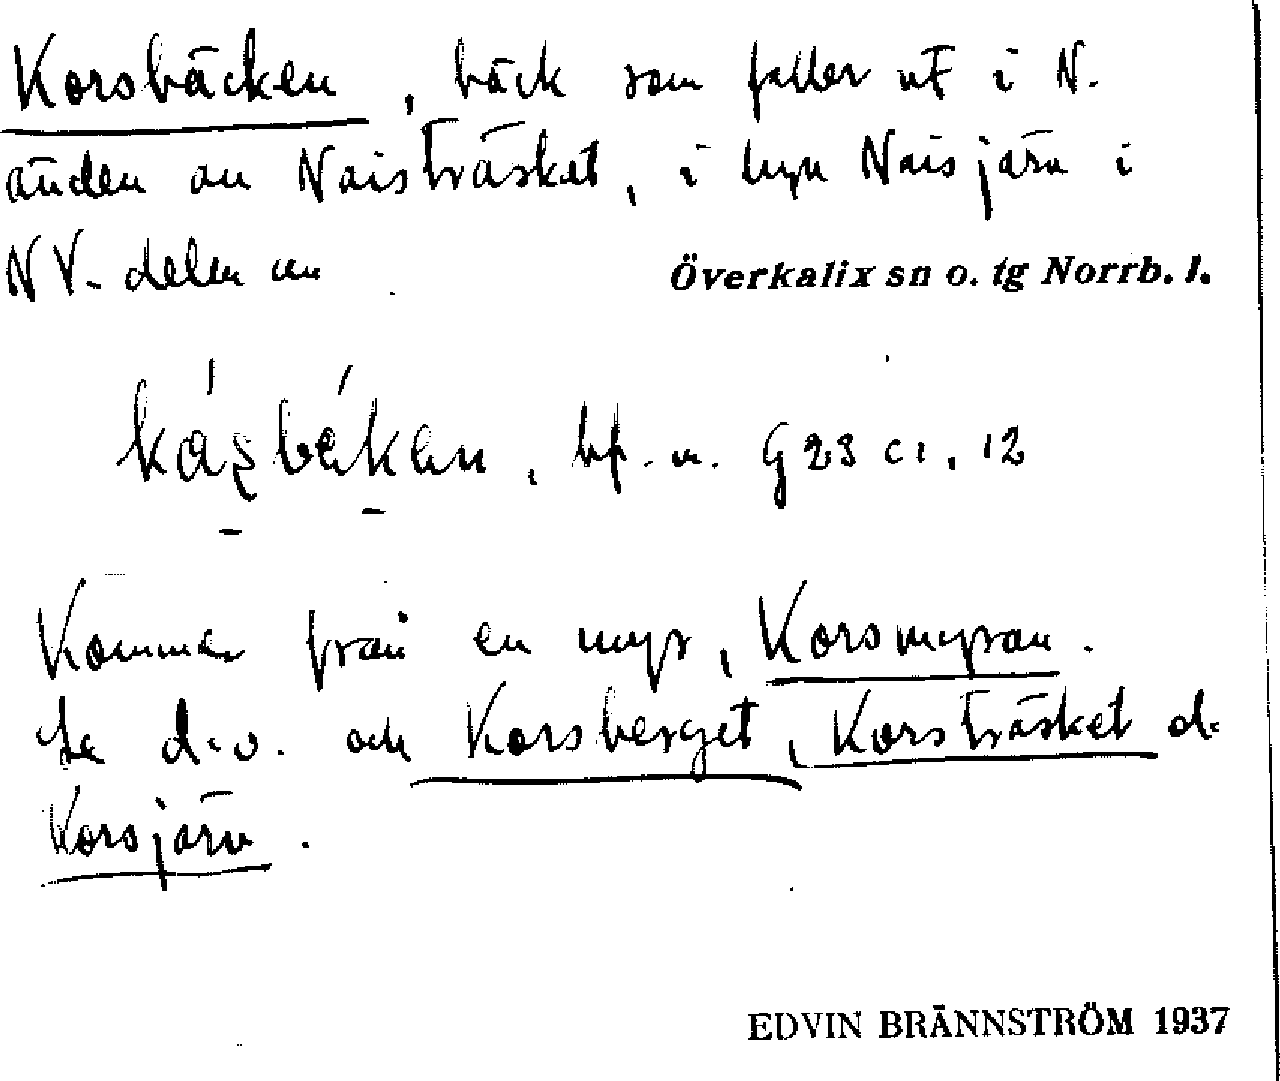 Korsbäcken, bäck som faller ut i N.
änden av Naisträsket, i byn Naisjärv i
NV. delen av Överkalix sn o. tg Norrb. l.
bf. n. G 23 c 1, 12
Kommer från en myr, Korsmyran.
Se d.o. och Korsberget, Korsträsket d:
Korsjärv.
EDVIN BRÄNNSTRÖM 1937